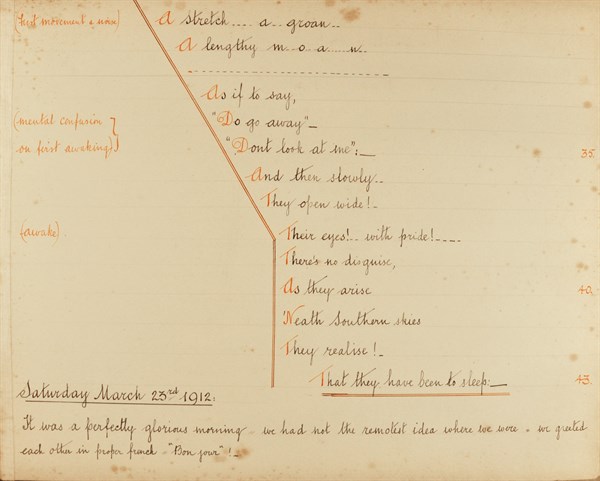 (first movement & noise) A stretch.... a.. groan..
A lengthy m..o..a....n..
As if to say,
(mental confusion "Do go away"_
on first awaking) "Dont look at me":_ 35.
And then slowly..
They open wide!_
(awake). Their eyes!.. with pride!....
There's no disguise,
As they arise 40.
'Neath Southern skies
They realise!_
That they have been to sleep:_ 43.
Saturday March 23rd 1912:
It was a perfectly glorious morning _ we had not the remotest idea where we were _ we greeted
each other in proper french _ "Bon jour"!_